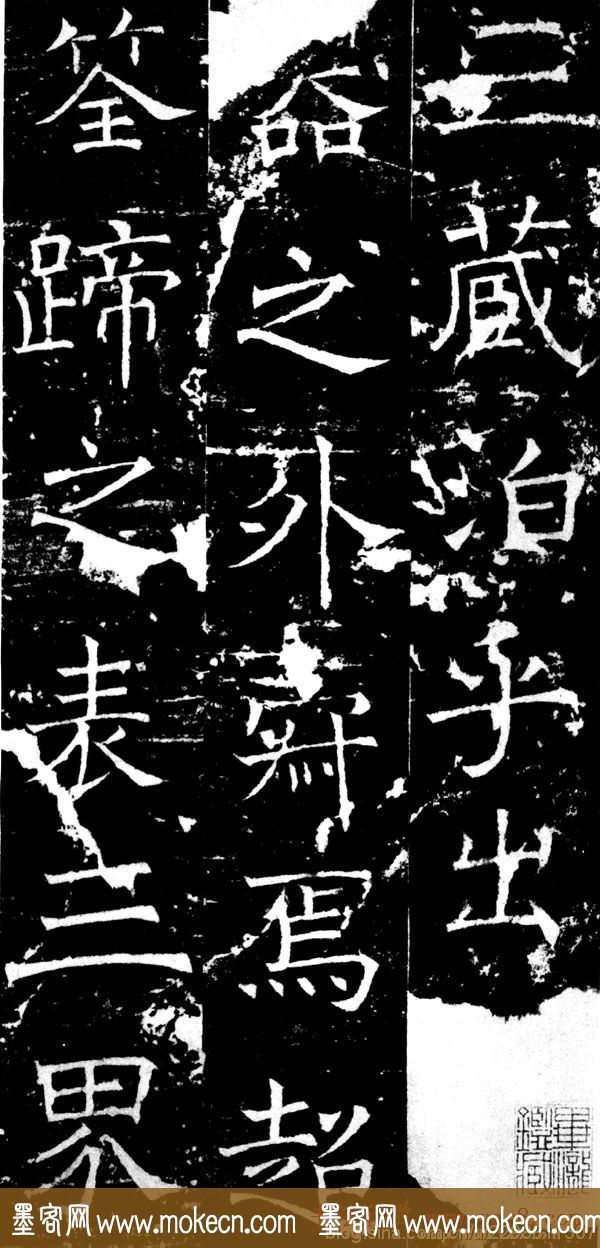 三藏泊乎出
器之外焉超
筌蹄之表三界
畢瀧鑑藏
墨客网 www.mokecn.com 墨客网 www.mokecn.com